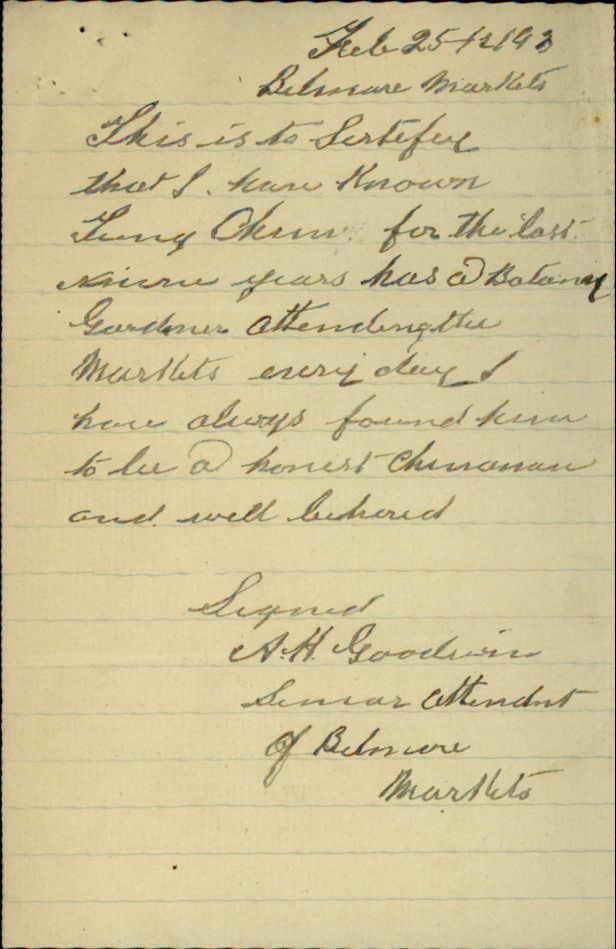 Feb 25th 1913
Belmore Markets
This is to Sertefey
that I have Known
for the last
years has a Botany
Gardner attending the
Markets every day I
have always found him
to be a honest Chinaman
and well behaved
Signed
A. H. Goodwin
Senior attendnt
Of Belmore
Markets